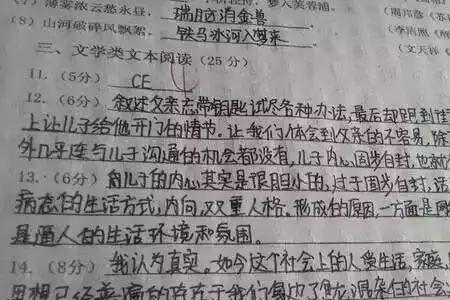 (7) 薄雾浓云愁永昼, 瑞脑消金兽
(8) 山河破碎风飘絮, 铁马冰河入梦来
三、文学类文本阅读(25分)
11. (5分) CE
12. (6分) 叙述父亲忘带钥匙试尽各种办法,最后却
上让儿子给他开门的情节。让我们体会到父亲的不容易,除
外几乎连与儿子沟通的机会都没有,儿子内心固步自封,也
13. (6分) 儿子的内心其实是很胆小的,过于固步自封,
病态的生活方式,内向,双重人格。形成的原因,一方面是
是逼人的生活环境和氛围。
14. (8分) 我认为真实。如今这个社会上的人受生活,家庭
思想已经普遍的存在于我们
(周邦彦
(李清照
(文天祥